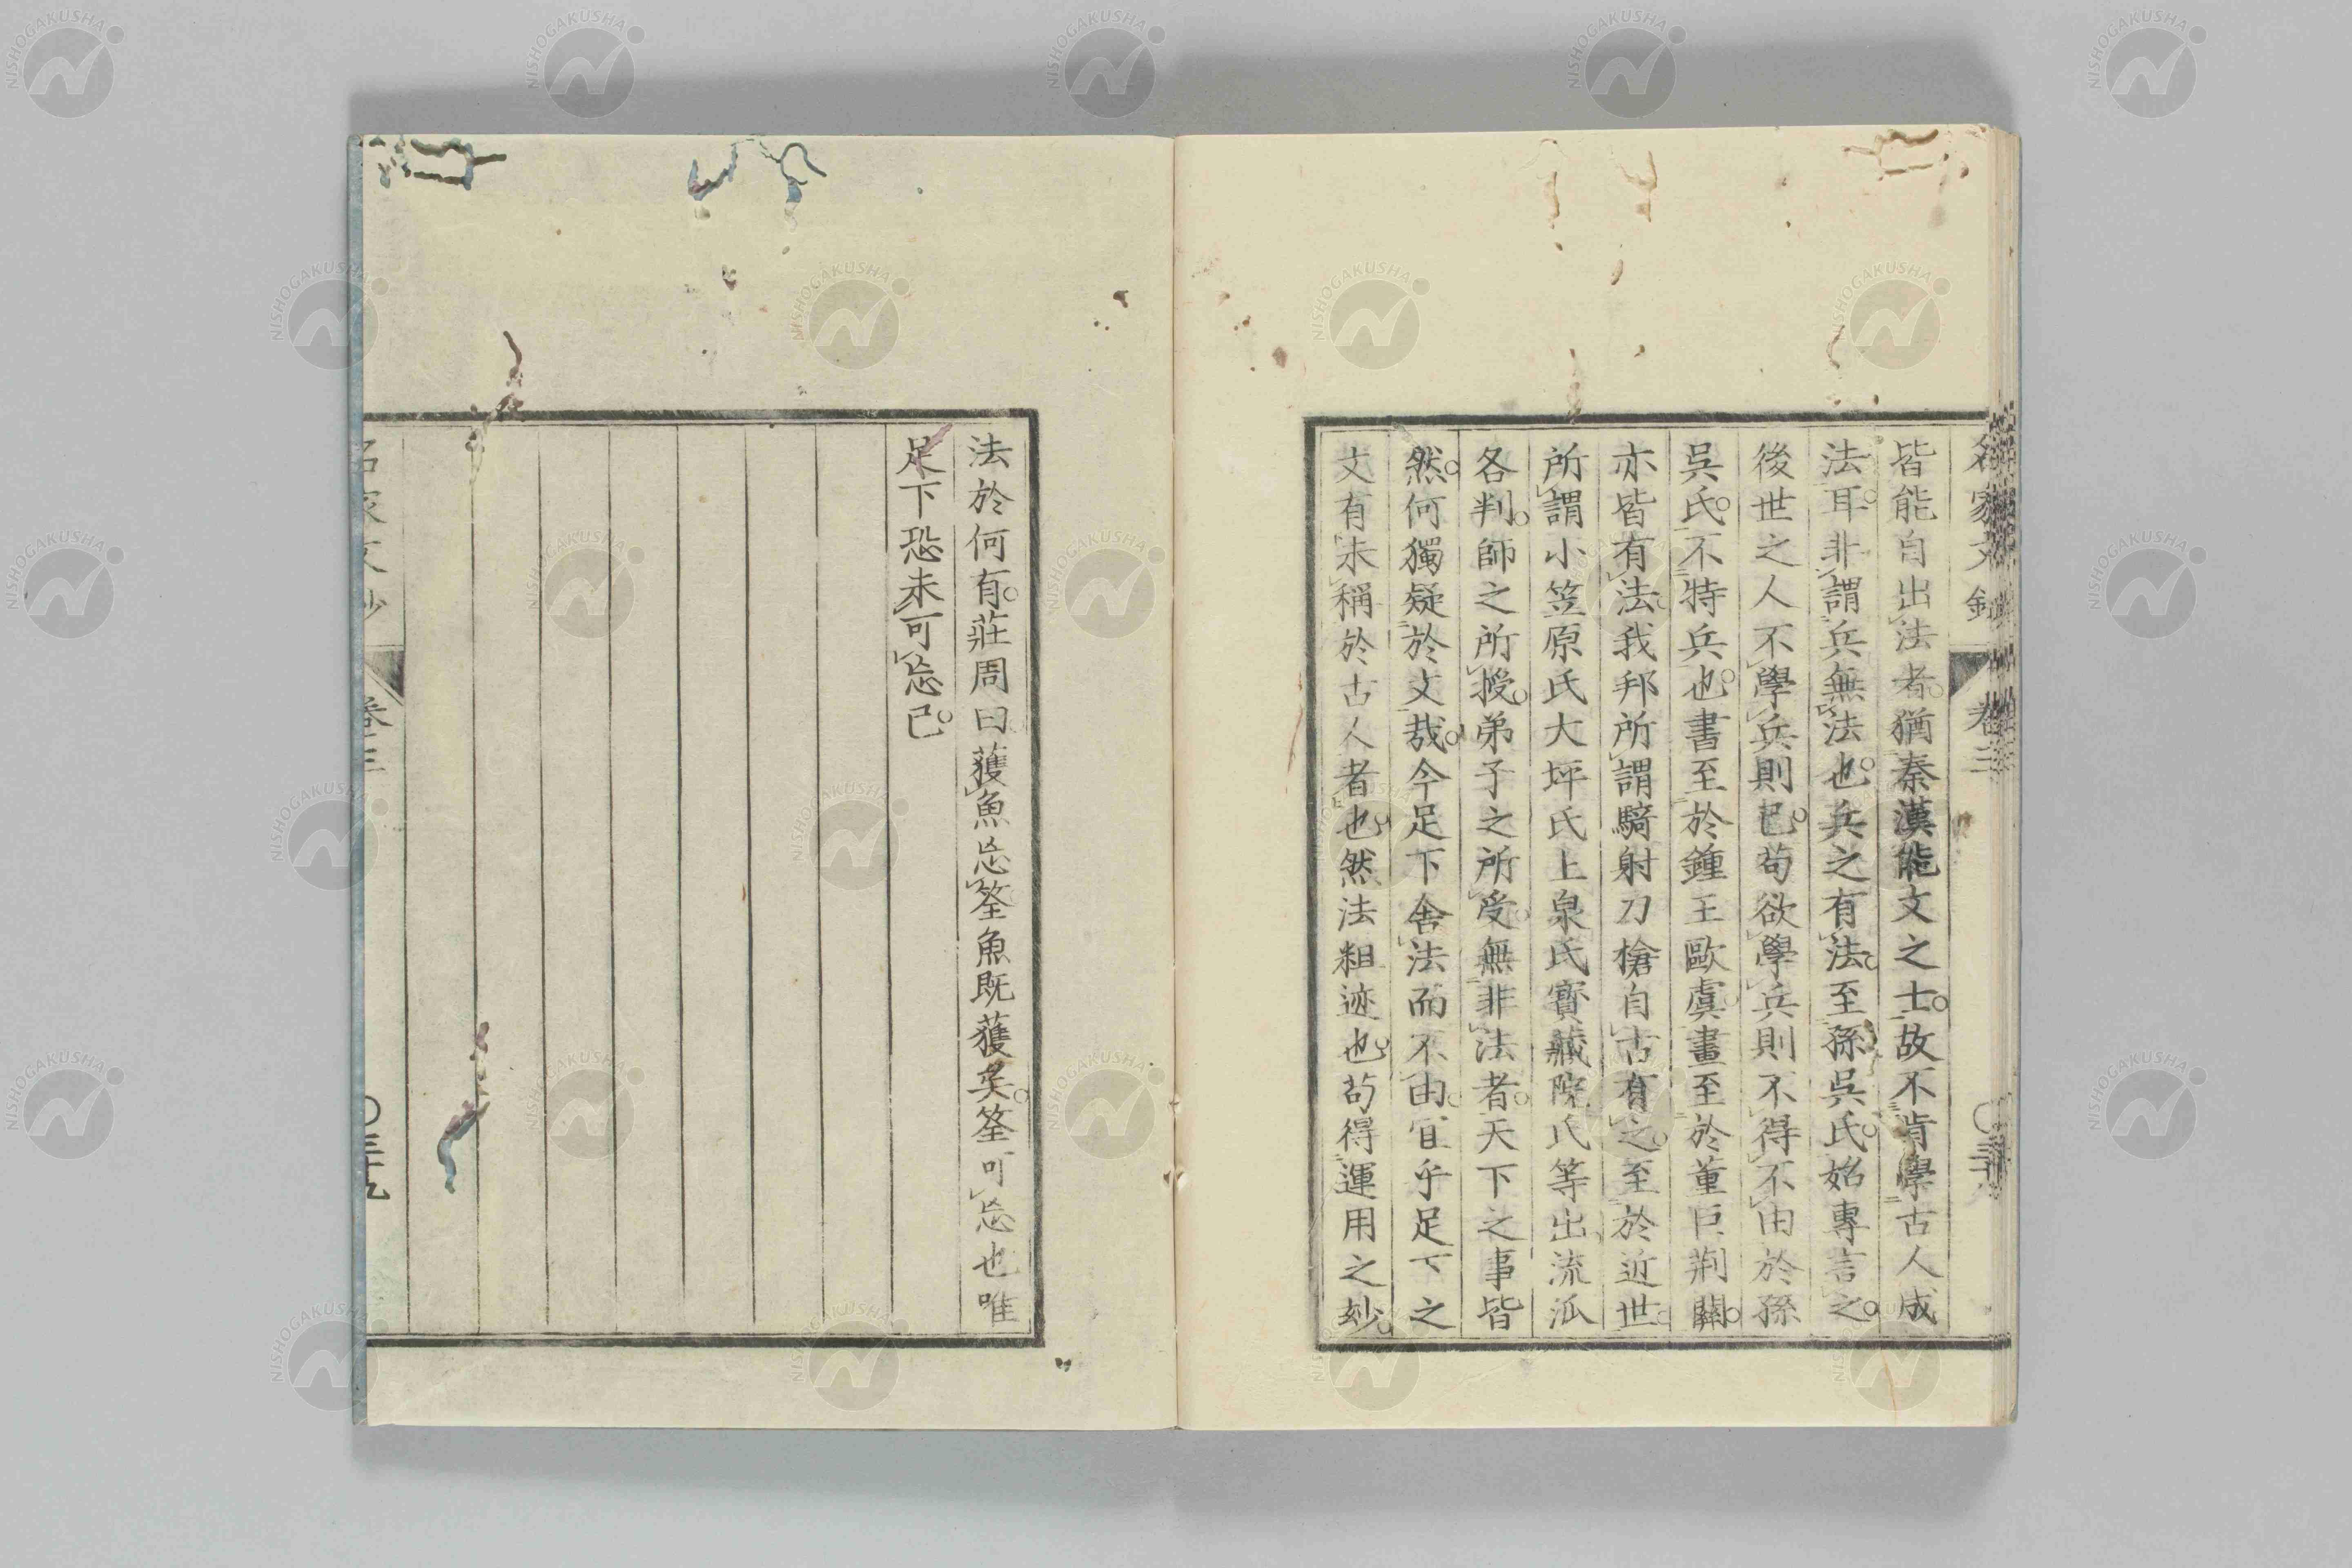 名家文鈔 卷三
皆能自出法者。猶秦漢能文之士。故不肯學古人成
法耳。非謂兵無法也。兵之有法。至孫吳氏。始專言之。
後世之人不學兵則已。苟欲學兵則不得不由於孫
吳氏。不特兵也。書至於鍾王歐虞。畫至於董巨荊關。
亦皆有法。我邦所謂騎射刀槍。自古有之。至於近世。
所謂小笠原氏大坪氏上泉氏寶藏院氏等出。流派
各判。師之所授。弟子之所受。無非法者。天下之事皆
然。何獨疑於文哉。今足下舍法而不由。宜乎足下之
文有未稱於古人者也。然法粗迹也。苟得運用之玅。
法於何有。莊周曰。獲魚忘筌。魚既獲矣。筌可忘也。唯
足下恐未可忘已。
名家文鈔 卷三 〇三十九